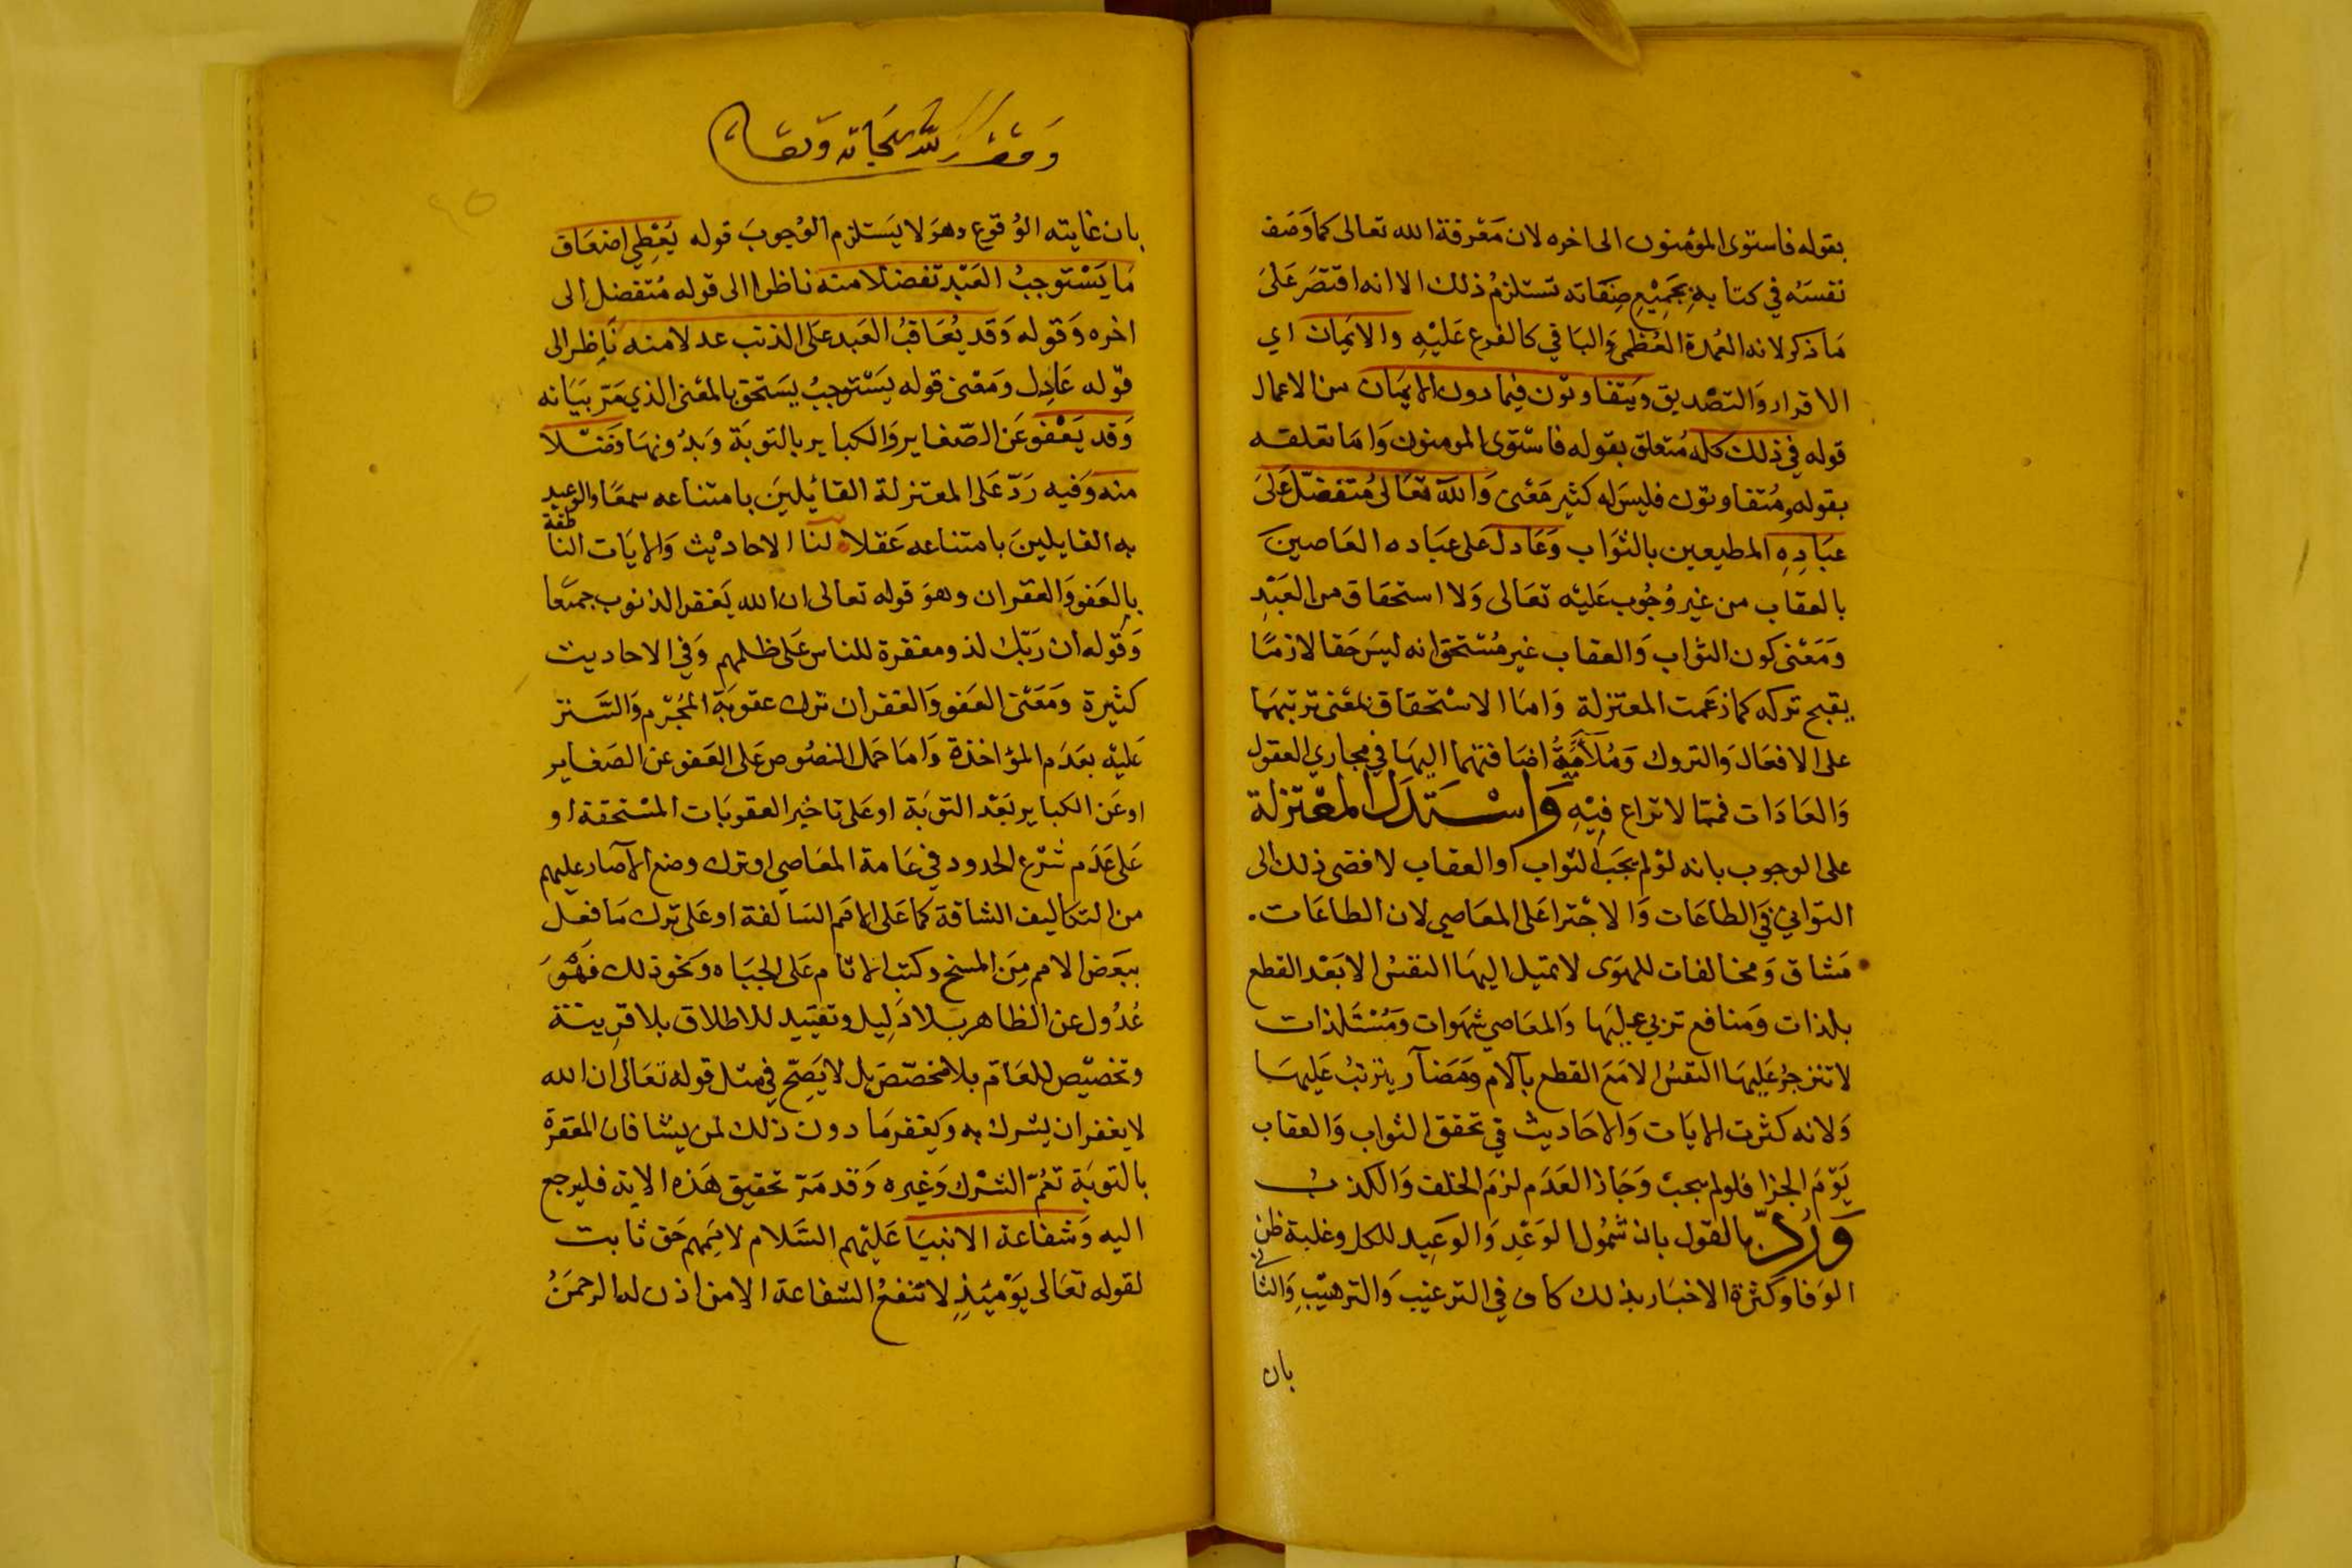 بقوله فاستوى المؤمنون الى اخره لان مَعْرفة الله تعالى كما وَصَف
نفسَه في كتابهِ بجَمِيْعِ صِفَاته تستلزمُ ذلك الا انه اقتصَر عَلىَ
مَا ذكر لانه العُمدة العُظمى وَالبَاقي كالفرع عَليْهِ والايمَان اي
الاقرار وَالتصْديق وَيتفاوتون فيما دون الايمَان من الاعمال
قوله في ذلك كله مُتعلق بقوله فاسْتوى المومنون وَاما تعلقه
بقوله ومُتفاوتون فليسَ له كثير مَعْنى وَالله تعَالى مُتفضّل عَلىَ
عبَادِهِ المطيعين بالثوَاب وَعَادل عَلى عبَاده العَاصينَ
بالعقاب من غير وُجُوب عَليْه تعَالى وَلا استحقاق من العَبْدِ
وَمَعْنى كون الثواب وَالعقاب غير مُسْتحق انه ليسَ حَقا لازمًا
يقبح تركه كما زعَمت المعتزلة وَامَا الاسْتحقاق بمَعْنى ترتبهمَا
على الافعَال وَالتروك وَمُلاَمَّةُ اضَافتهما اليهَا في مجاري العقول
وَالعَادَات فممّا لا نزاع فِيْهِ وَاسْتَدَلَ المعْتزلة
على الوجوب بانه لوْ لم يجَب الثواب او العقاب لافضى ذلك الى
التواني في الطاعَات وَالاجْترا عَلى المعَاصي لان الطاعَات.
مَشاق وَمخالفات للهوَى لا تميل اليهَا النفسُ الا بَعْد القطع
بلذات وَمنافع تربي عليها وَالمعَاصي شهوات وَمُسْتَلذات
لا تنزجرُ عَليهَا النفسُ الا مَعَ القطع بآلام وَمَضآر يترتبُ عَليهَا
وَلانه كثرت الايَات وَالاحَاديث في تحقق الثواب وَالعقاب
يَوْمَ الجزا فلو لم يجبْ وَجَاز العَدَم لزمَ الخلف وَالكذبُ
وَرُدّ بالقول بان شمُول الوَعْدِ وَالوَعِيد للكل وغلبة ظن
الوَفا وَكثرة الاخبَار بذلك كاف في الترغيب وَالترهيْبِ وَالثاني
بان
وَقف لله سُبحَانه وَتعَالى
بان غايته الوُقوع وهوَ لا يَستلزم الوُجوبَ قوله يُعْطِي اضعَاف
مَا يَسْتوجبُ العَبْد تفضلا منه ناظرا الى قوله مُتفضل الى
اخره وَقوله وَقد يُعَاقبُ العَبد عَلى الذنب عدلا منه نَاظر الى
قوْله عَادِل وَمَعْنى قوله يَسْتوجبُ يسَتحق بالمعْنى الذي مَرّ بَيَانه
وَقد يَعْفو عَن الصّغاير وَالكباير بالتوبَة وَبدُونهَا فَضْلا
منه وَفيه رَدّ عَلى المعتزلة القائلينَ بامتناعه سمعًا والوعيد
به القايلينَ بامتناعه عَقلا لنا الاحاديْث وَالايَات الناطقة
بالعَفو وَالغفران وهوَ قوله تعالى ان الله يَغفر الذنوب جميعًا
وَقوله ان رَبّك لذو مغفرة للناس عَلى ظلمهم وَفي الاحاديث
كثيرة وَمَعْنى العَفو وَالغفران ترك عقوبَة المجْرم وَالتَّستر
عَليْه بعَدَم المؤاخذة وَامَا حَمل النصُوص عَلى العَفو عن الصَغاير
او عَن الكباير بَعْد التوبَة او عَلى تاخير العقوبَات المسْتحقة او
عَلى عَدَم شرْع الحدود في عَامة المعَاصي او ترك وضع الآصَار عليهم
من التكاليف الشاقة كما عَلى الامَم السَالفة او عَلى ترك مَا فعل
ببَعْض الامم مِنَ المسخ وكتب الاثام عَلى الجبَاه وَنحو ذلك فهْوَ
عُدُول عن الظاهر بلا دَلِيل وتقيّيد للاطلاق بلا قرِينة
وتخصيْص للعَام بلا مخصّص بل لا يَصِحّ في مثل قوله تعَالى ان الله
لا يغفر ان يشرك به وَيغفر مَا دون ذلك لمن يشا فان المغفرة
بالتوبَة تعُمّ الشرْك وَغيره وَقد مَرّ تحقيق هَذه الاية فليرجع
اليه وَشفاعة الانبيَا عَليْهم السَّلام لاِمَمِهم حَق ثابت
لقوله تعَالى يَوْمَئذٍ لا تنفعُ الشفاعة الا من اذن له الرحمَنُ